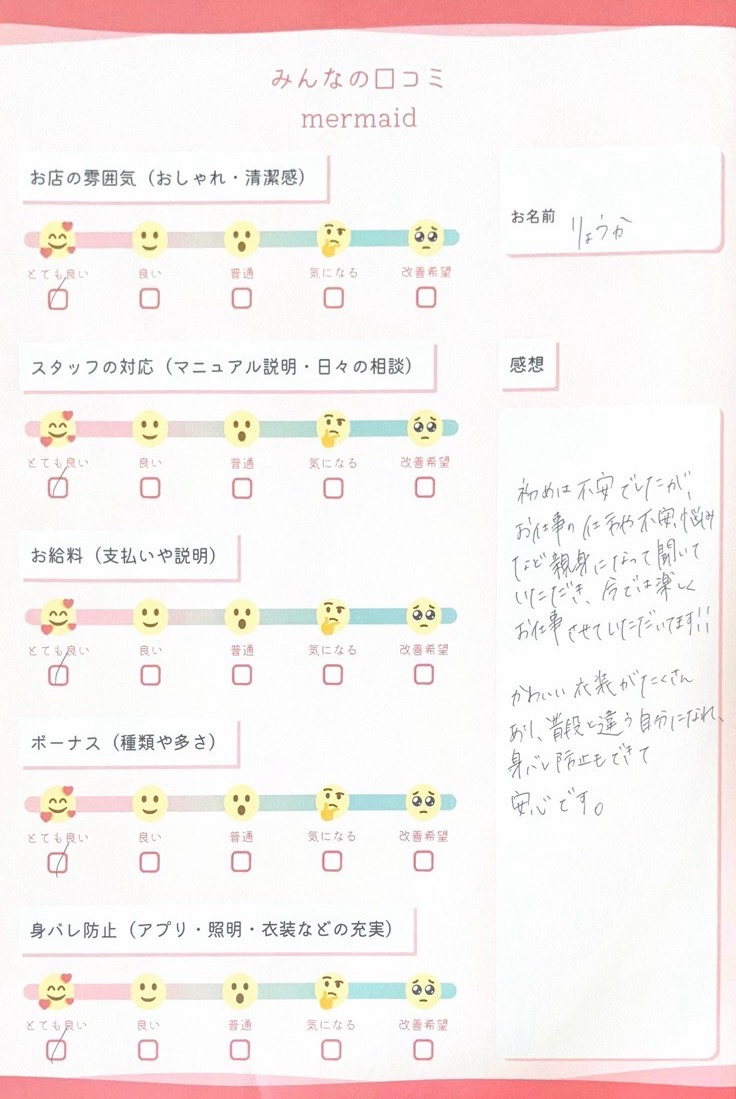 みんなの口コミ
mermaid
お店の雰囲気（おしゃれ・清潔感）
とても良い 良い 普通 気になる 改善希望
スタッフの対応（マニュアル説明・日々の相談）
とても良い 良い 普通 気になる 改善希望
お給料（支払いや説明）
とても良い 良い 普通 気になる 改善希望
ボーナス（種類や多さ）
とても良い 良い 普通 気になる 改善希望
身バレ防止（アプリ・照明・衣装などの充実）
とても良い 良い 普通 気になる 改善希望
お名前 りょうか
感想
初めは不安でしたが、
お仕事の仕方や不安、悩み
など親身になって聞いて
いただき、今では楽しく
お仕事させていただいてます!!
かわいい衣装がたくさん
あり、普段と違う自分になれ、
身バレ防止もできて
安心です。